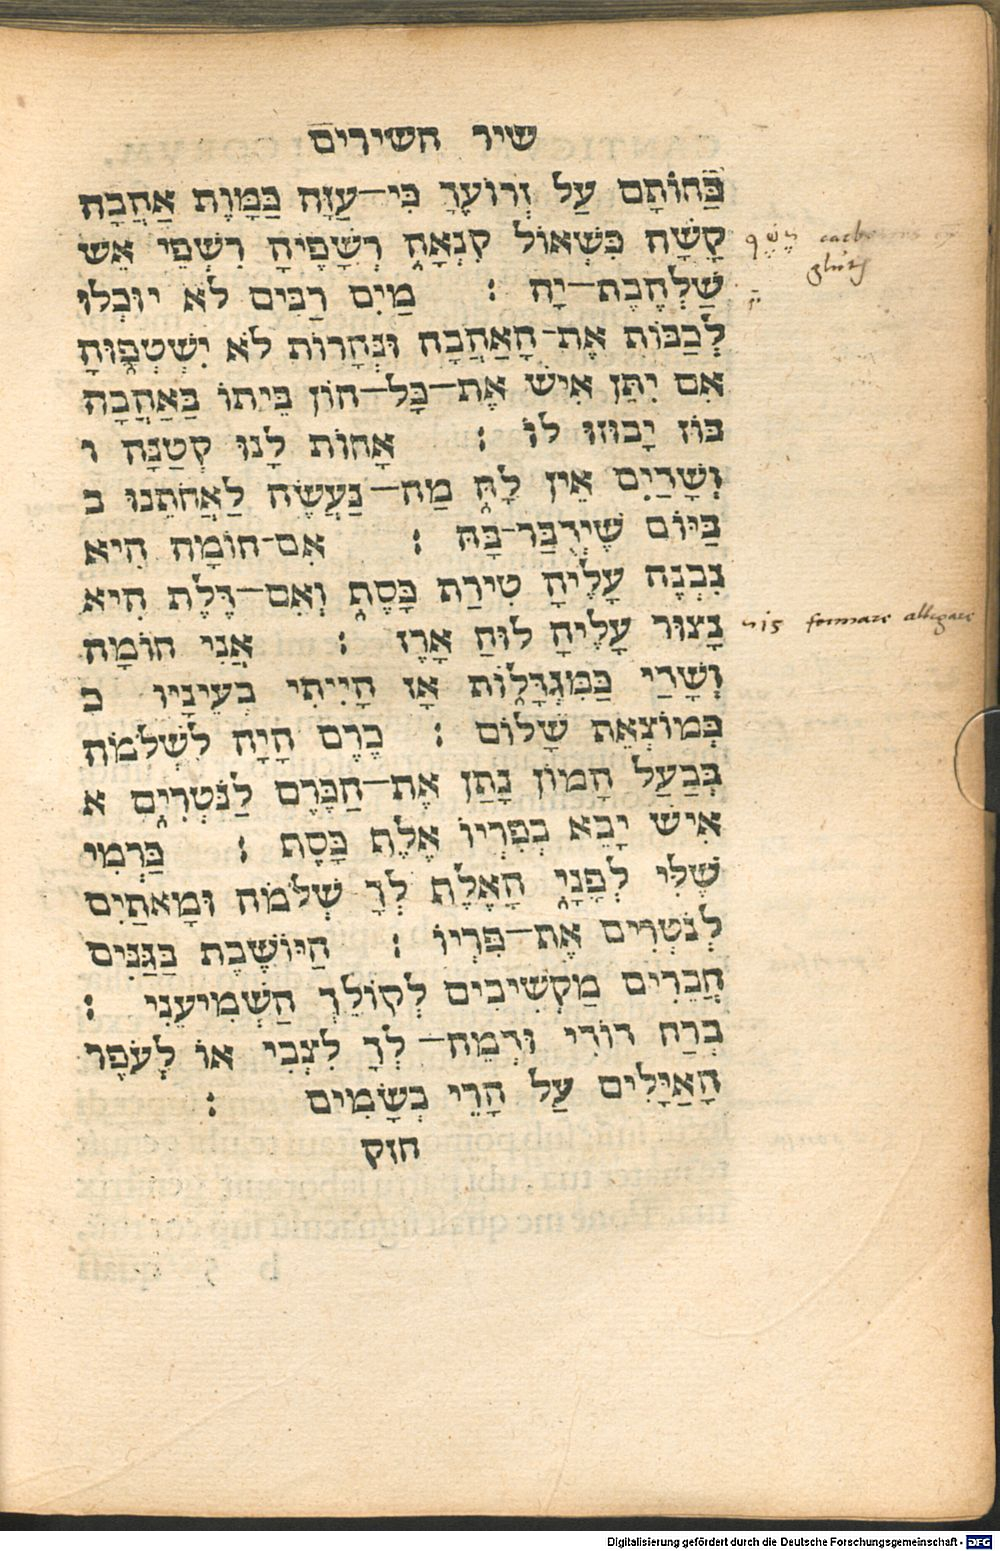 שיר השירים
כַּחוֹתָם עַל זְרוֹעֶךָ כִּי־עַזָּה כַּמָּוֶת אַהֲבָה
קָשָׁה כִּשְׁאוֹל קִנְאָה רְשָׁפֶיהָ רִשְׁפֵּי אֵשׁ
שַׁלְהֶבֶת־יָה : מַיִם רַבִּים לֹא יוּכְלוּ
לְכַבּוֹת אֶת־הָאַהֲבָה וּנְהָרוֹת לֹא יִשְׁטְפוּהָ
אִם יִתֵּן אִישׁ אֶת־כָּל־הוֹן בֵּיתוֹ בָּאַהֲבָה
בּוֹז יָבוּזוּ לוֹ : אָחוֹת לָנוּ קְטַנָּה ו
וְשָׁדַיִם אֵין לָהּ מַה־נַּעֲשֶׂה לַאֲחֹתֵנוּ ב
בַּיּוֹם שֶׁיְדֻבַּר־בָּהּ : אִם־חוֹמָה הִיא
נִבְנֶה עָלֶיהָ טִירַת כָּסֶף וְאִם־דֶּלֶת הִיא
נָצוּר עָלֶיהָ לוּחַ אָרֶז : אֲנִי חוֹמָה
וְשָׁדַי כַּמִּגְדָּלוֹת אָז הָיִיתִי בְעֵינָיו כ
כְּמוֹצְאֵת שָׁלוֹם : כֶּרֶם הָיָה לִשְׁלֹמֹה
בְּבַעַל הָמוֹן נָתַן אֶת־הַכֶּרֶם לַנֹּטְרִים א
אִישׁ יָבִא בְּפִרְיוֹ אֶלֶף כָּסֶף : כַּרְמִי
שֶׁלִּי לְפָנָי הָאֶלֶף לְךָ שְׁלֹמֹה וּמָאתַיִם
לְנֹטְרִים אֶת־פִּרְיוֹ : הַיּוֹשֶׁבֶת בַּגַּנִּים
חֲבֵרִים מַקְשִׁיבִים לְקוֹלֵךְ הַשְׁמִיעִנִי :
בְּרַח דּוֹדִי וּדְמֵה־לְךָ לִצְבִי אוֹ לְעֹפֶר
הָאַיָּלִים עַל הָרֵי בְשָׂמִים :
חזק
formare alligare
Digitalisierung gefördert durch die Deutsche Forschungsgemeinschaft - DFG